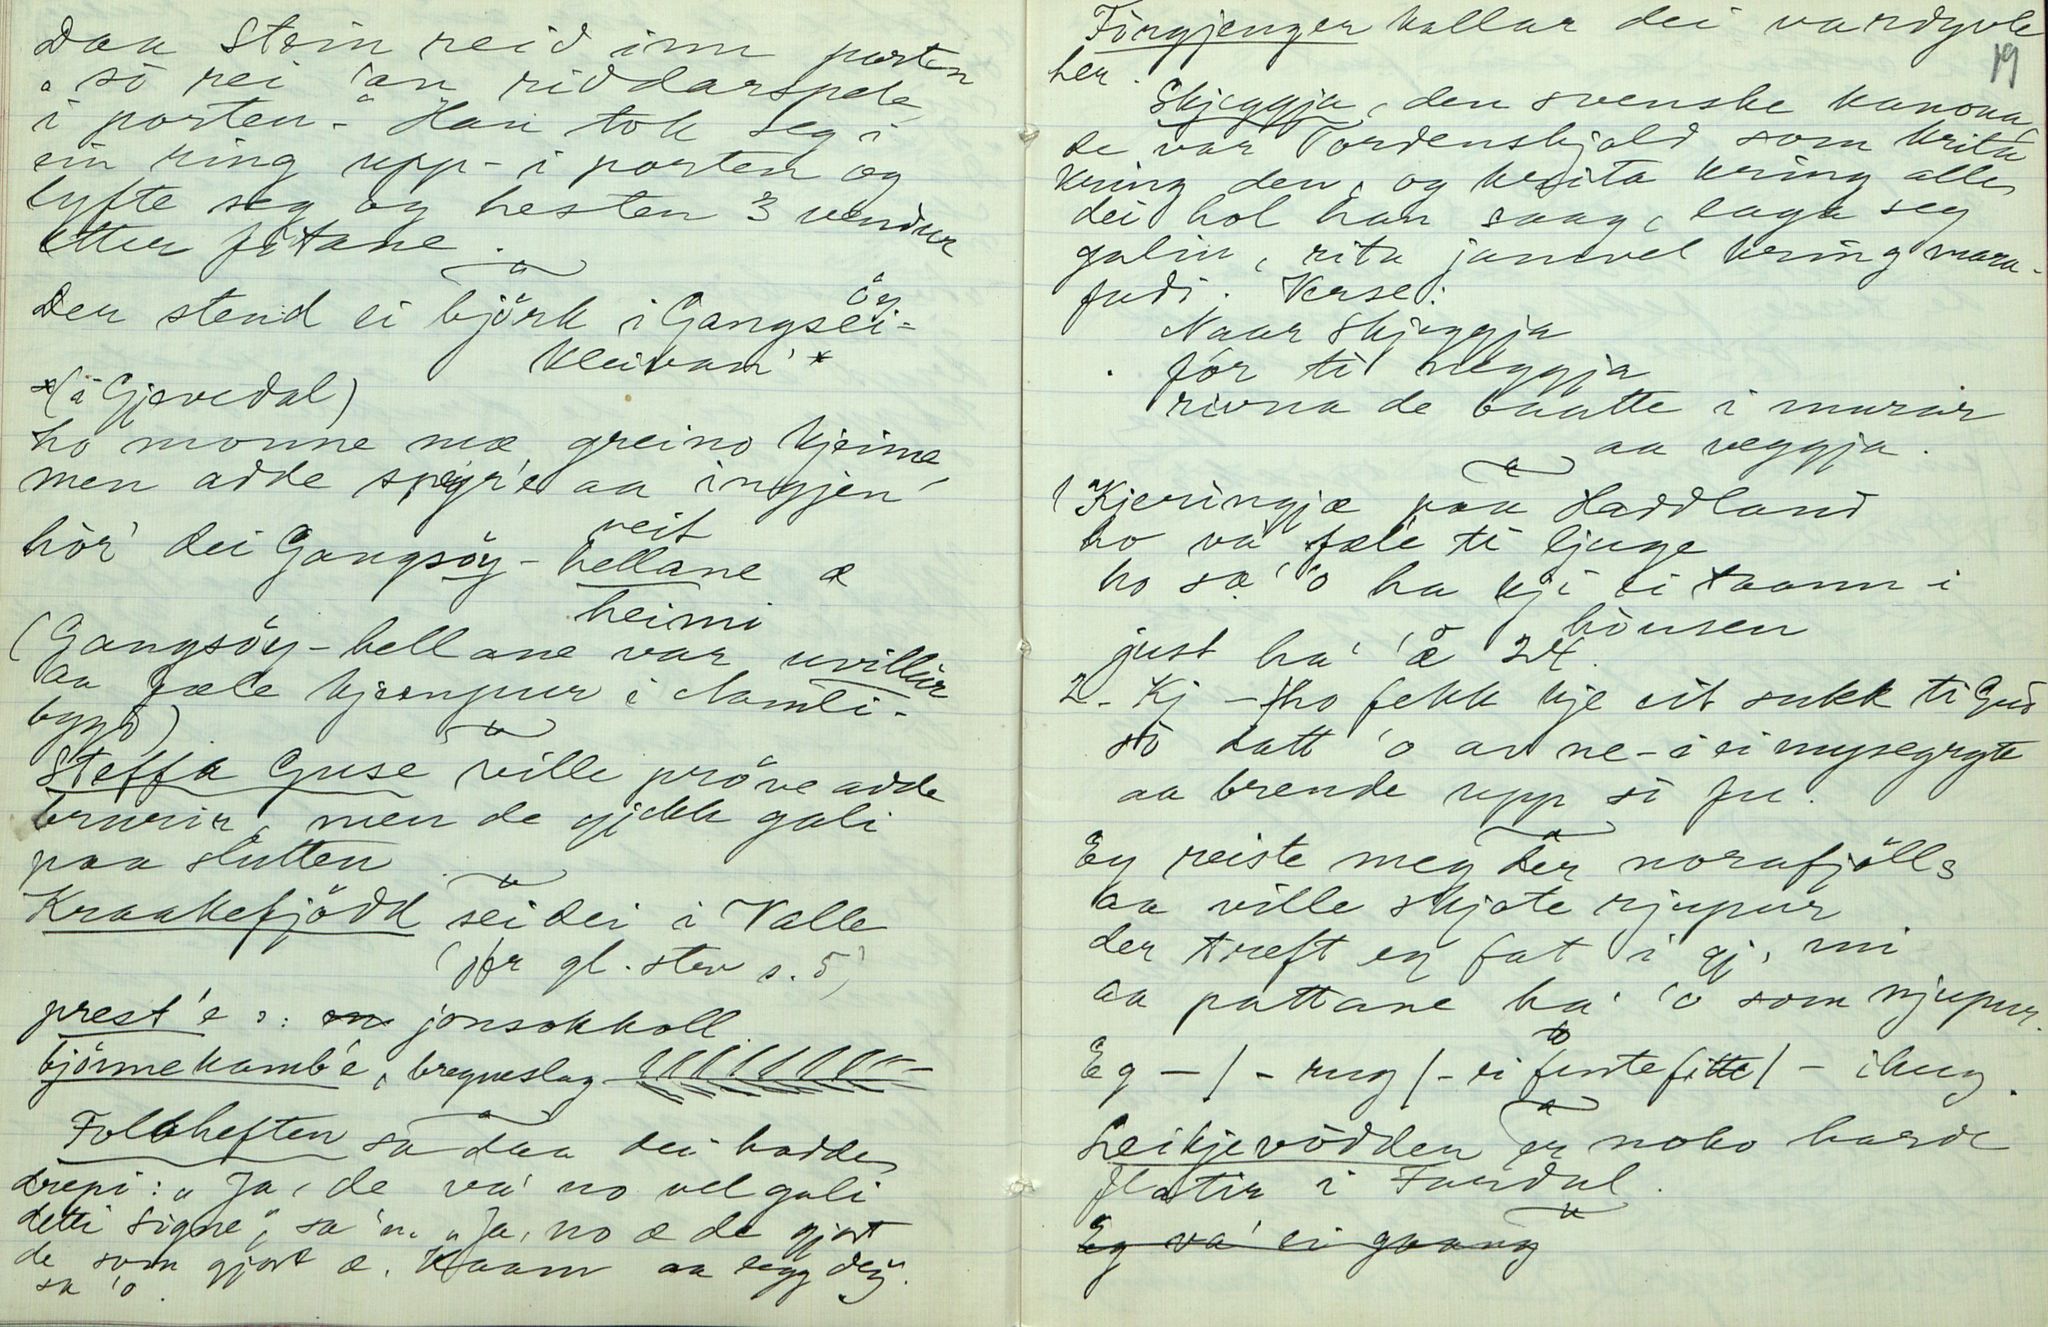 Daa Stein reid inn porten
"so rei 'an riddarspele
i porten." Han tok seg i
ein ring upp-i porten og
lyfte seg og hesten 3 vendur
etter fitane.
Der stend ei björk i Gangsei-
öy
kleivan' *
*(i Gjevedal)
ho monne mæ greino kjeime,
men adde spyr'e aa ingjen'
veit
hör' dei Gangsöy-hellane æ
heimi
(Gangsöy-hellane var uvillir
aa fæle kjempur i Aamli-
bygd)
Steffa Guse ville pröve adde
brurir, men de gjekk gali
paa slutten
Kraakefjödd sei dei i Valle
(jfr gl. stev s. 5)
prest'e ɔ: jonsokkoll
björnekamb'e, bregneslag
Folkheften sa daa dei hadde
drepi: "Ja, de va' no vel gali
detti Signe", sa 'n. "Ja, no æ de gjort
de som gjort æ. Kaam aa legg deg"
sa 'o.
19
Förgjenger kallar dei vardyvle
her.
Skjeggja, den svenske kanona,
de var Tordenskjold som krita
kring den, og krita kring alle
dei hol han saag, laga seg
galin, rita jamvel kring mara-
fudi. Verse:
Naar Skjeggja
fór ti leggja
rivna de baatte i murar
aa veggja.
1 Kjeringjæ paa Haddland
ho va' fæle ti ljuge
ho sa' 'o ha kji ei taann i
hausen
just ha' 'o 24.
2 - Kj - ho fekk kje eit sukk ti Gud
so datt 'o av ne-i ei mysegryte
aa brende upp si fu.
Eg reiste meg der norafjölls
aa ville skjote rjupur
der treft eg fat i gj, mi
aa pattane ha' 'o som njupur.
Eg - / - rug / - ei fentefitte / - ihug.
to
Leikjevödden er noko harde
flatir i Fardal.
Eg va' ei gaang